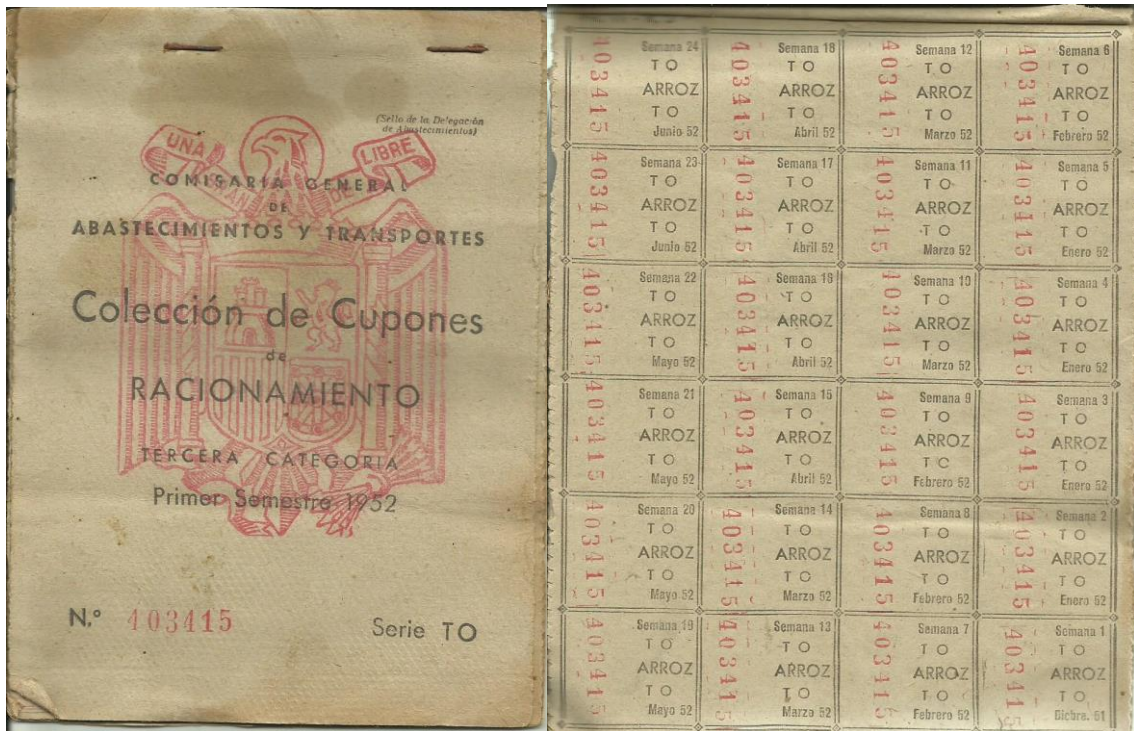 (Sello de la Delegación
de Abastecimientos)
UNA
LIBRE
COMISARÍA GENERAL
DE
ABASTECIMIENTOS Y TRANSPORTES
Colección de Cupones
de
RACIONAMIENTO
TERCERA CATEGORÍA
Primer Semestre 1952
N.° 403415
Serie TO
403415
Semana 24
TO
ARROZ
TO
Junio 52
403415
Semana 18
TO
ARROZ
TO
Abril 52
403415
Semana 12
TO
ARROZ
TO
Marzo 52
403415
Semana 6
TO
ARROZ
TO
Febrero 52
403415
Semana 23
TO
ARROZ
TO
Junio 52
403415
Semana 17
TO
ARROZ
TO
Abril 52
403415
Semana 11
TO
ARROZ
TO
Marzo 52
403415
Semana 5
TO
ARROZ
TO
Enero 52
403415
Semana 22
TO
ARROZ
TO
Mayo 52
403415
Semana 16
TO
ARROZ
TO
Abril 52
403415
Semana 10
TO
ARROZ
TO
Marzo 52
403415
Semana 4
TO
ARROZ
TO
Enero 52
403415
Semana 21
TO
ARROZ
TO
Mayo 52
403415
Semana 15
TO
ARROZ
TO
Abril 52
403415
Semana 9
TO
ARROZ
TO
Febrero 52
403415
Semana 3
TO
ARROZ
TO
Enero 52
403415
Semana 20
TO
ARROZ
TO
Mayo 52
403415
Semana 14
TO
ARROZ
TO
Marzo 52
403415
Semana 8
TO
ARROZ
TO
Febrero 52
403415
Semana 2
TO
ARROZ
TO
Enero 52
403415
Semana 19
TO
ARROZ
TO
Mayo 52
403415
Semana 13
TO
ARROZ
TO
Marzo 52
403415
Semana 7
TO
ARROZ
TO
Febrero 52
403415
Semana 1
TO
ARROZ
TO
Dicbre. 51